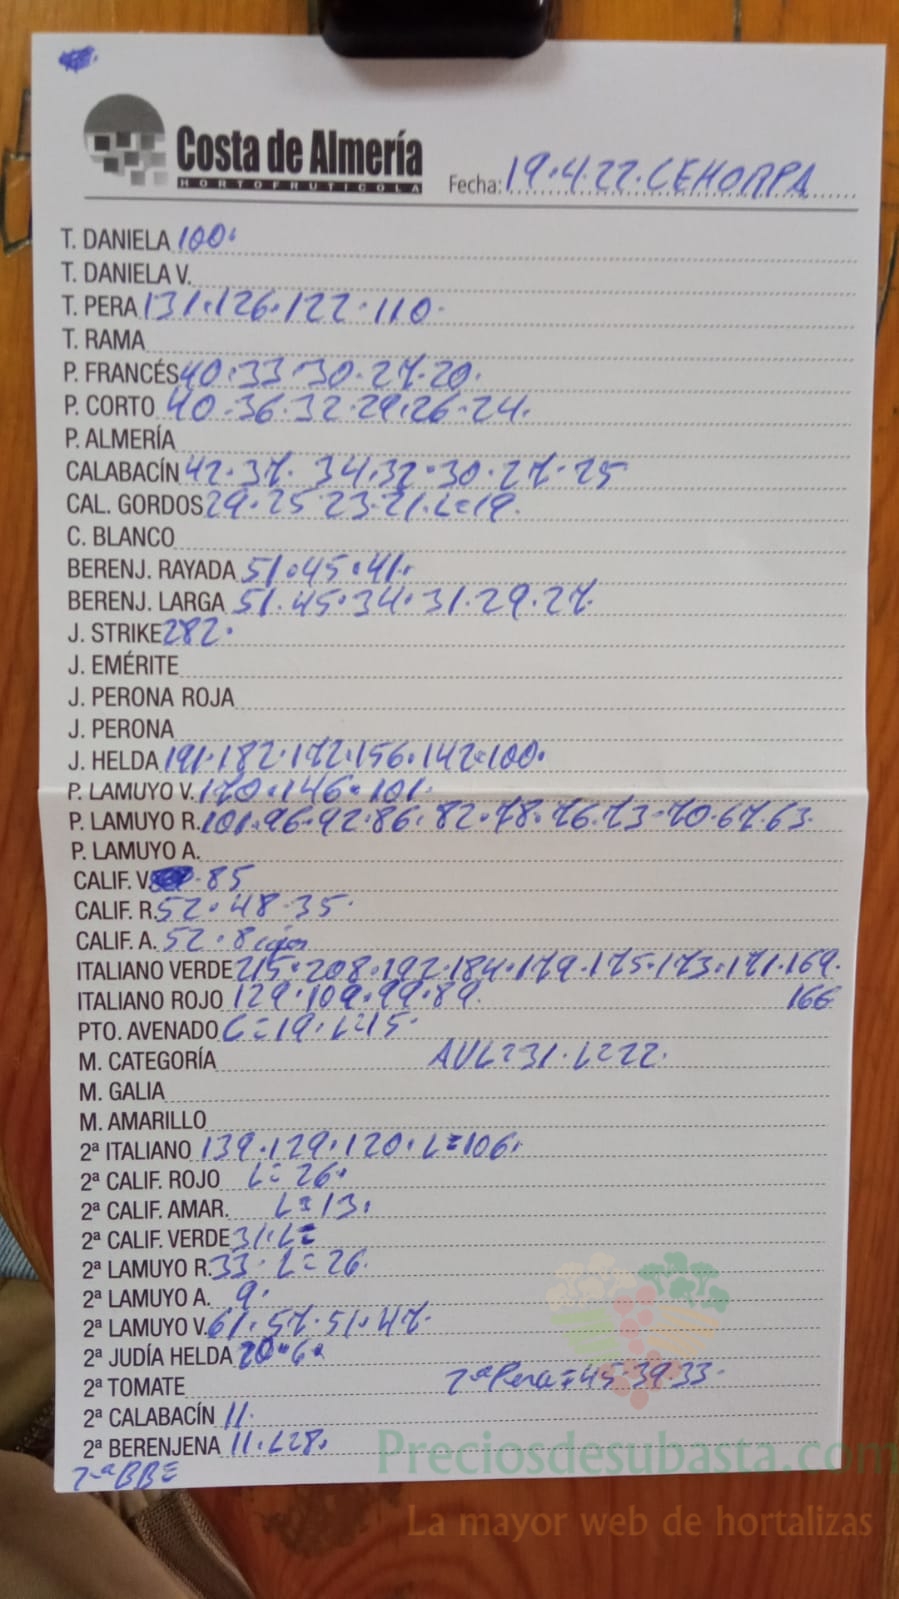 Costa de Almería
HORTOFRUTICOLA
Fecha: 19.4.22. CEHORPA
T. DANIELA 100.
T. DANIELA V.
T. PERA 131.126.122.110.
T. RAMA
P. FRANCÉS 40.33.30.27.20.
P. CORTO 40.36.32.29.26.24.
P. ALMERÍA
CALABACÍN 42.37. 34.32.30.27.25
CAL. GORDOS 29.25 23.21.L=19.
C. BLANCO
BERENJ. RAYADA 51.45.41.
BERENJ. LARGA 51.45.34.31.29.27.
J. STRIKE 282.
J. EMÉRITE
J. PERONA ROJA
J. PERONA
J. HELDA 191.182.172.156.142=100.
P. LAMUYO V. 170.146.101.
P. LAMUYO R. 101.96.92.86.82.78.76.73.70.67.63.
P. LAMUYO A.
CALIF. V. .85
CALIF. R. 52.48.35.
CALIF. A. 52.8
ITALIANO VERDE 215.208.192.184.179.175.173.171.169.
ITALIANO ROJO 129.109.99.89. 166
PTO. AVENADO C=19.L=15.
M. CATEGORÍA AVL=31.L=22.
M. GALIA
M. AMARILLO
2ª ITALIANO 139.129.120.L=106.
2ª CALIF. ROJO L=26.
2ª CALIF. AMAR. L=13.
2ª CALIF. VERDE 31.L=
2ª LAMUYO R. 33. L=26.
2ª LAMUYO A. 9.
2ª LAMUYO V. 61.57.51.47.
2ª JUDÍA HELDA 20.6.
2ª TOMATE 2ª Pera=45.39.33.
2ª CALABACÍN 11.
2ª BERENJENA 11.L28.
2ª BBE
Preciosdesubasta.com
La mayor web de hortalizas